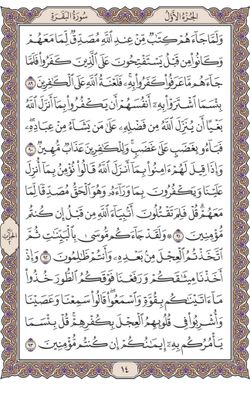 الجزء الأول
سورة البقرة
ولما جاءهم كتب من عند الله مصدق لما معهم
وكانوا من قبل يستفتحون على الذين كفروا فلما
جاءهم ما عرفوا كفروا به فلعنة الله على الكفرين ٨٩
بئسما اشتروا به أنفسهم أن يكفروا بما أنزل الله
بغيا أن ينزل الله من فضله على من يشاء من عباده
فباءو بغضب على غضب وللكفرين عذاب مهين ٩٠
وإذا قيل لهم ءامنوا بما أنزل الله قالوا نؤمن بما أنزل
علينا ويكفرون بما وراءه وهو الحق مصدقا لما
معهم قل فلم تقتلون أنبياء الله من قبل إن كنتم
مؤمنين ٩١ ولقد جاءكم موسى بالبينت ثم
اتخذتم العجل من بعده وأنتم ظلمون ٩٢ وإذ
أخذنا ميثقكم ورفعنا فوقكم الطور خذوا
ما ءاتينكم بقوة واسمعوا قالوا سمعنا وعصينا
وأشربوا في قلوبهم العجل بكفرهم قل بئسما
يأمركم به إيمنكم إن كنتم مؤمنين ٩٣
١٤